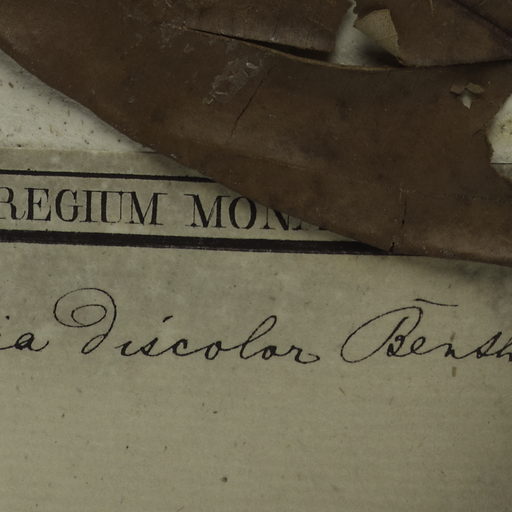 REGIUM MONA
ia Discolor Benth